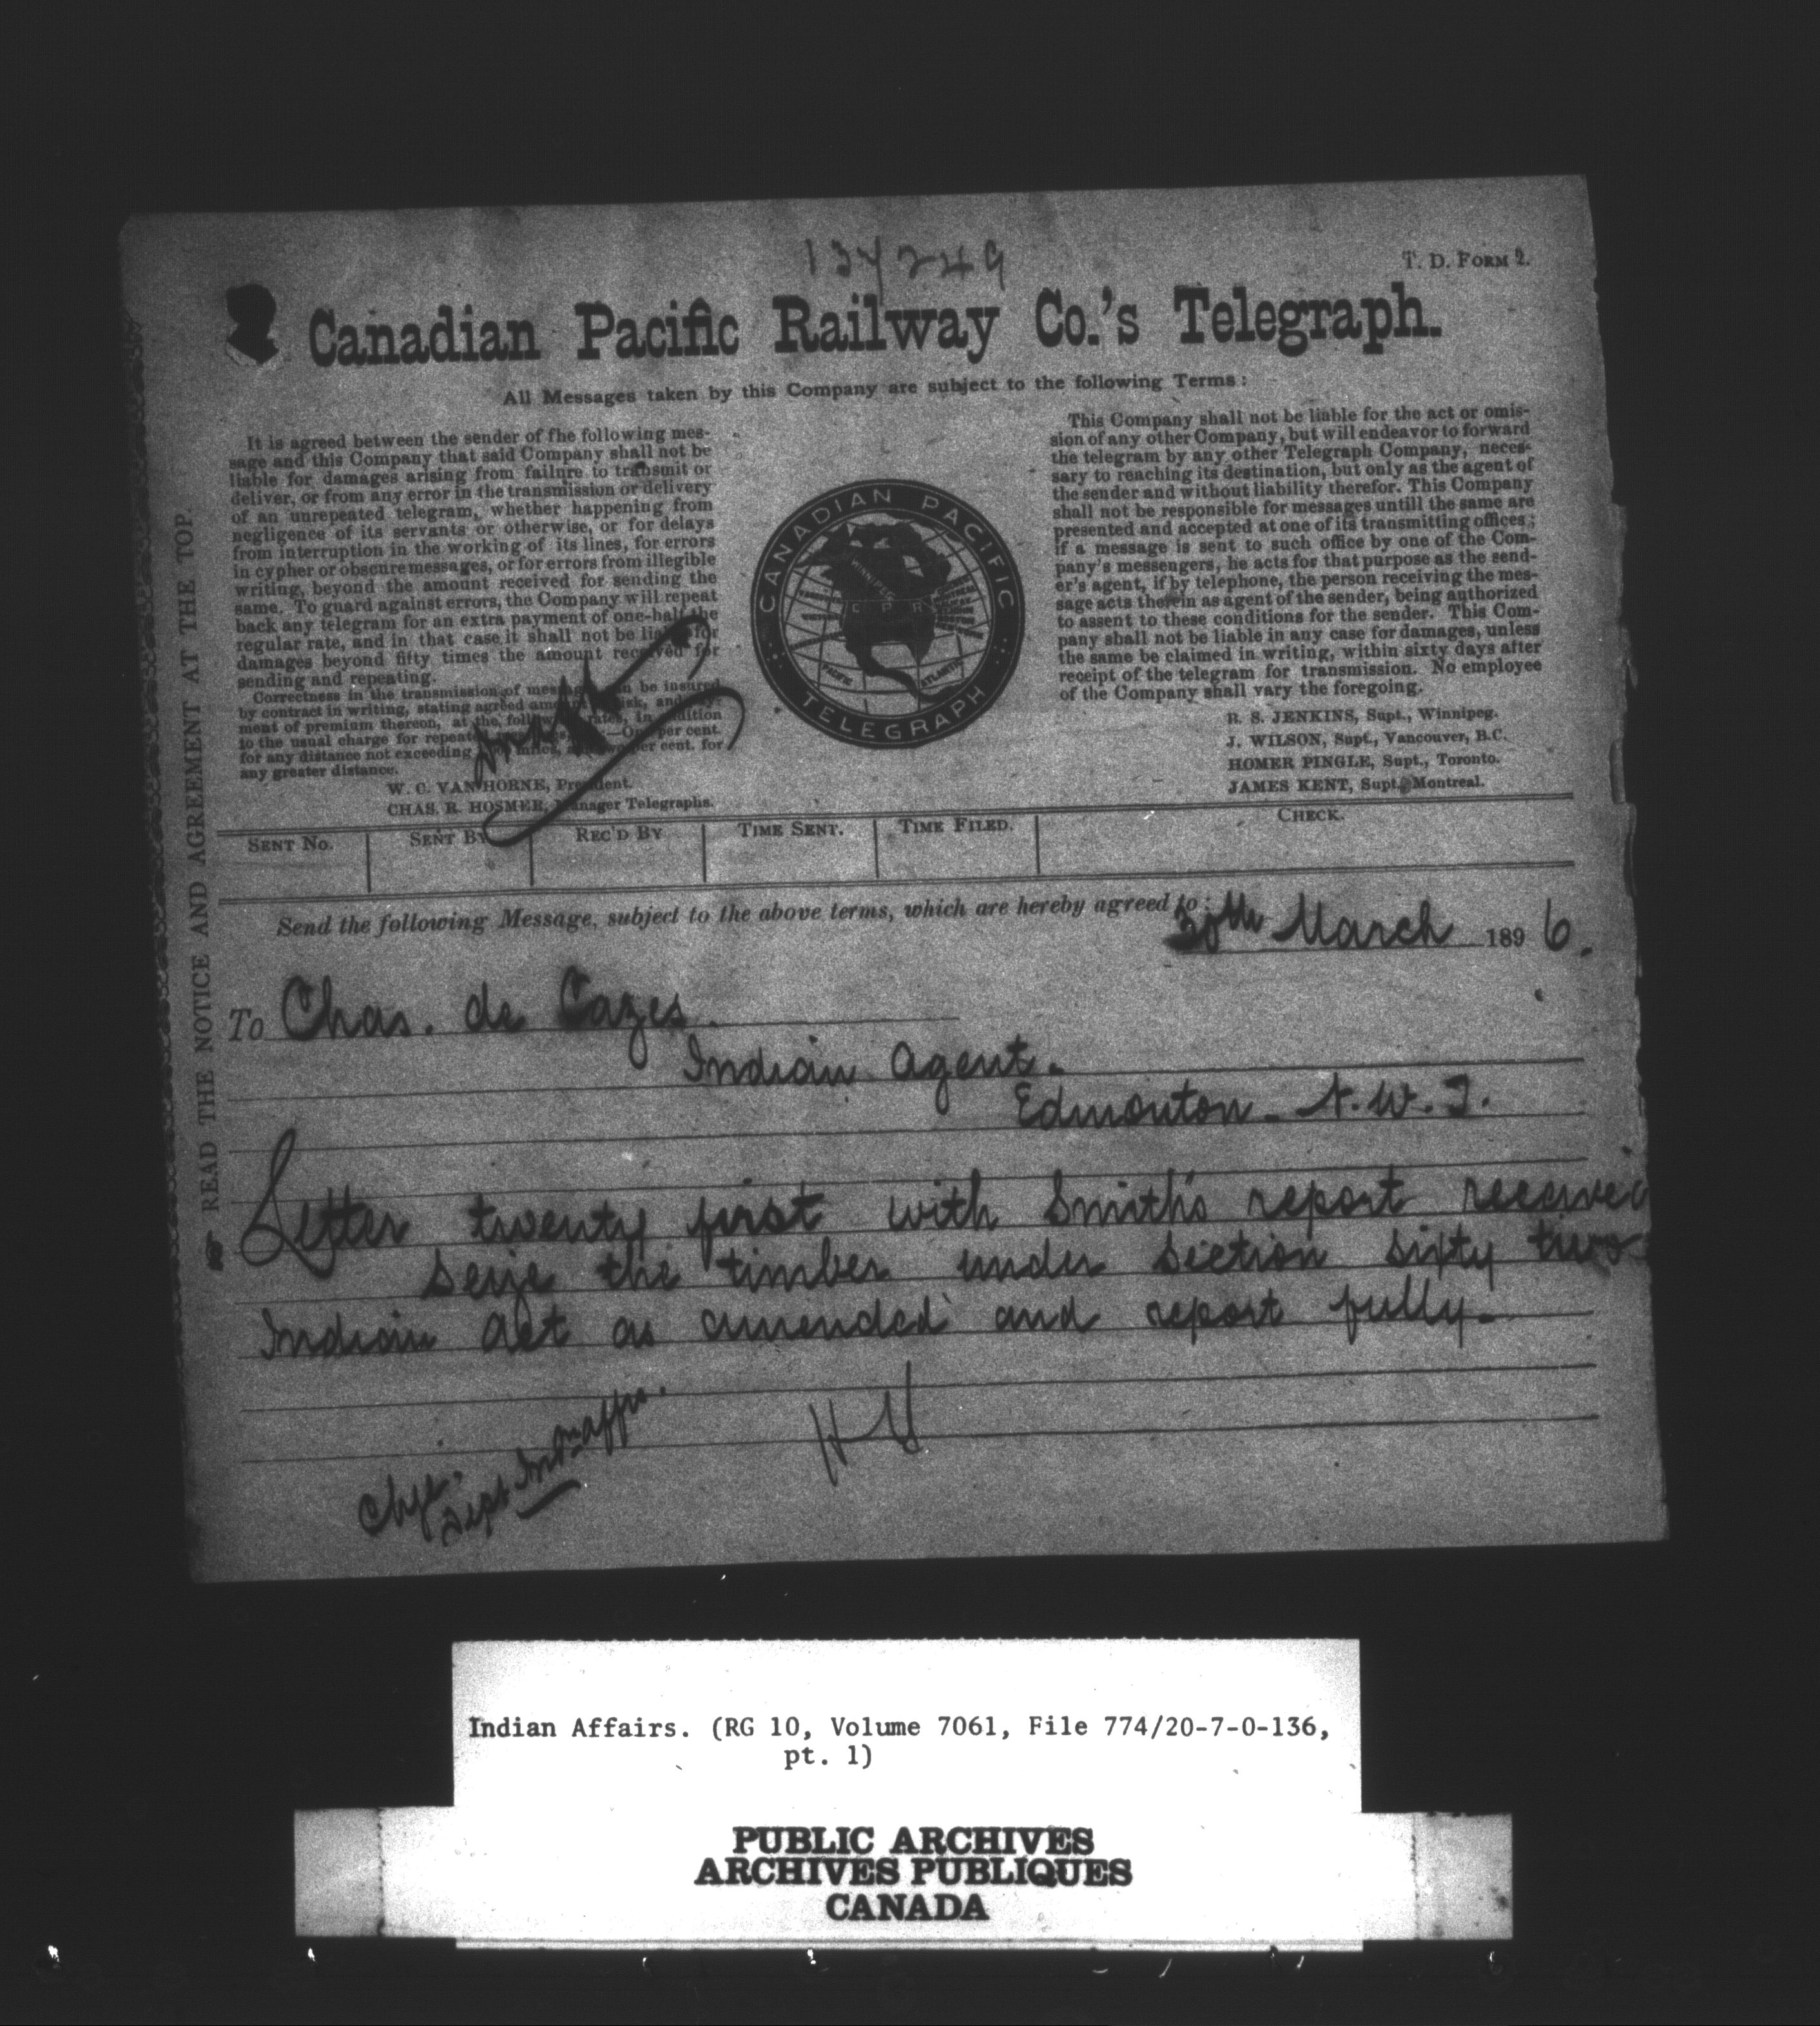 T. D. FORM 2.
Canadian Pacific Railway Co.'s Telegraph.
All Messages taken by this Company are subject to the following Terms:
It is agreed between the sender of fhe following mes-
sage and this Company that said Company shall not be
liable for damages arising from failure to transmit or
deliver, or from any error in the transmission or delivery
of an unrepeated telegram, whether happening from
negligence of its servants or otherwise, or for delays
from interruption in the working of its lines, for errors
in cypher or obscure messages, or for errors from illegible
writing, beyond the amount received for sending the
same. To guard against errors, the Company will repeat
back any telegram for an extra payment of one-half the
regular rate, and in that case it shall not be liable for
damages beyond fifty times the amount received for
sending and repeating.
Correctness in the transmission of messages can be insured
by contract in writing, stating agreed amount of risk, and
ment of premium thereon, at the following rates, in addition
to the usual charge for repeated per cent.
for any distance not exceeding miles, and two per cent. for
any greater distance.
W. C. VAN HORNE, President.
CHAS. R. HOSMER, Manager Telegraphs.
CANADIAN PACIFIC
WINNIPEG
C P R
PACIFIC ATLANTIC
TELEGRAPH
This Company shall not be liable for the act or omis-
sion of any other Company, but will endeavor to forward
the telegram by any other Telegraph Company, neces-
sary to reaching its destination, but only as the agent of
the sender and without liability therefor. This Company
shall not be responsible for messages untill the same are
presented and accepted at one of its transmitting offices;
if a message is sent to such office by one of the Com-
pany's messengers, he acts for that purpose as the send-
er's agent, if by telephone, the person receiving the mes-
sage acts therein as agent of the sender, being authorized
to assent to these conditions for the sender. This Com-
pany shall not be liable in any case for damages, unless
the same be claimed in writing, within sixty days after
receipt of the telegram for transmission. No employee
of the Company shall vary the foregoing.
R. S. JENKINS, Supt., Winnipeg.
J. WILSON, Supt., Vancouver, B.C.
HOMER PINGLE, Supt., Toronto.
JAMES KENT, Supt., Montreal.
READ THE NOTICE AND AGREEMENT AT THE TOP.
SENT NO. SENT BY REC'D BY TIME SENT. TIME FILED. CHECK.
Send the following Message, subject to the above terms, which are hereby agreed to:
30th March 1896.
To Chas. de Cazes.
Indian Agent.
Edmonton. N.W.T.
Letter twenty first with Smith's report received
seize the timber under section sixty two
Indian Act as amended and report fully.
Indian Affairs. (RG 10, Volume 7061, File 774/20-7-0-136,
pt. 1)
PUBLIC ARCHIVES
ARCHIVES PUBLIQUES
CANADA